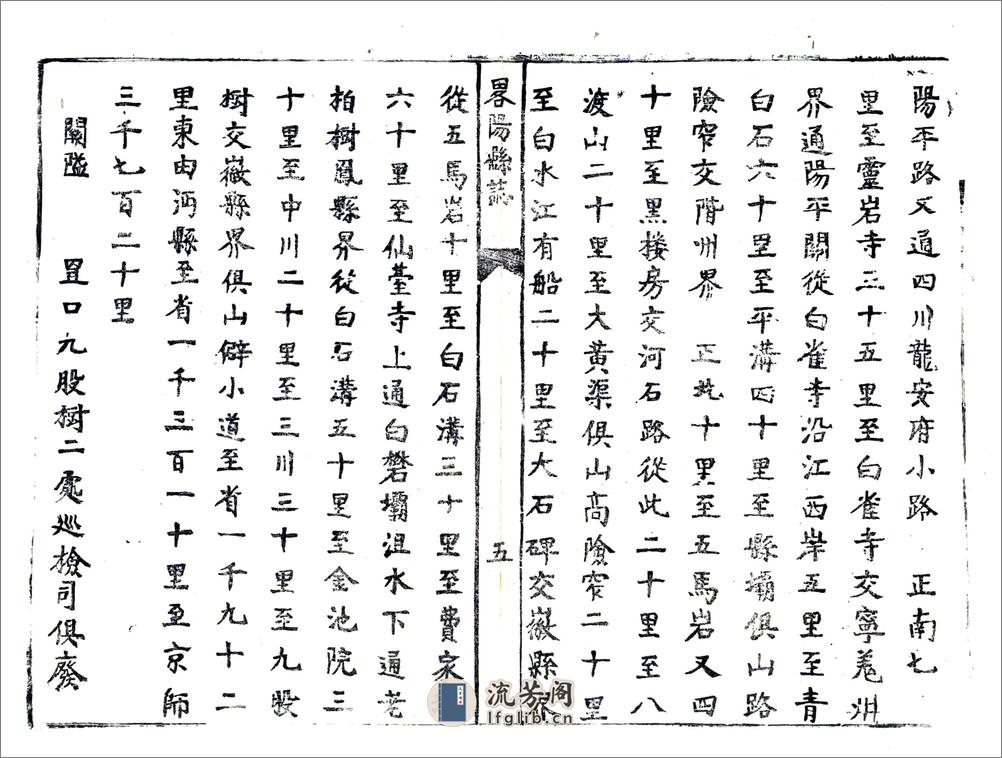 陽平路又通四川龍安府小路　正南七
里至靈岩寺三十五里至白雀寺交寧羗州
界通陽平關從白雀寺沿江西岸五里至青
白石六十里至平溝四十里至縣壩俱山路
險窄交階州界　正北十里至五馬岩又四
十里至黑楼房交河石路從此二十里至八
渡山二十里至大黃渠俱山高險窄二十里
至白水江有船二十里至大石碑交徽縣界
畧陽縣誌
五
從五馬岩十里至白石溝三十里至費家
六十里至仙臺寺上通白礬壩沮水下通老
柏樹鳳縣界從白石溝五十里至金池院三
十里至中川二十里至三川三十里至九股
樹交徽縣界俱山僻小道至省一千九十二
里東由沔縣至省一千三百一十里至京師
三千七百二十里
關隘　罝口九股樹二處巡檢司俱廢
流芳阁
lfglib.cn